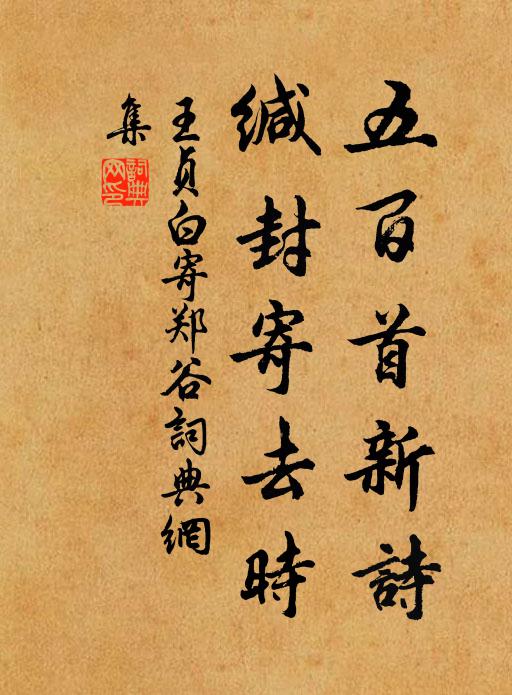 五百首新詩
缄封寄去時
王贞白寄郑谷詞典網
集
詞典
网印